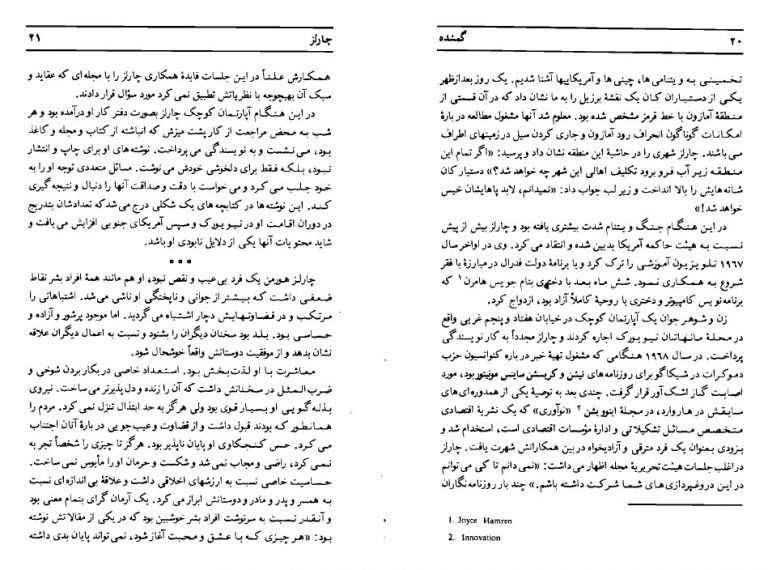 ۲۰ گمشده
تخمینی به ویتنامی ها، چینی ها و آمریکاییها آشنا شدیم. یک روز بعدازظهر
یکی از دستیاران کان یک نقشهٔ برزیل را به ما نشان داد که در آن قسمتی از
منطقهٔ آمازون با خط قرمز مشخص شده بود. معلوم شد آنها مشغول مطالعه در بارهٔ
امکانات گوناگون انحراف رود آمازون و جاری کردن سیل در زمینهای اطراف
می باشند. چارلز شهری را در حاشیهٔ این منطقه نشان داد و پرسید: «اگر تمام این
منطقه زیر آب فرو برود تکلیف اهالی این شهر چه خواهد شد؟» دستیار کان
شانه هایش را بالا انداخت و زیر لب جواب داد: «نمیدانم، لابد پاهایشان خیس
خواهد شد!»
در این هنگام جنگ ویتنام شدت بیشتری یافته بود و چارلز بیش از پیش
نسبت به هیئت حاکمه آمریکا بدبین شده و انتقاد می کرد. وی در اواخر سال
۱۹۶۷ تلویزیون آموزشی را ترک کرد و با برنامهٔ دولت فدرال در مبارزهٔ با فقر
شروع به همکاری نمود. شش ماه بعد با دختری بنام جویس هامرن۱ که
برنامه نویس کامپیوتر و دختری با روحیهٔ کاملاً آزاد بود، ازدواج کرد.
زن و شوهر جوان یک آپارتمان کوچک در خیابان هفتاد و پنجم غربی واقع
در محلهٔ مانهاتان نیویورک اجاره کردند و چارلز مجدداً به کار نویسندگی
پرداخت. در سال ۱۹۶۸ هنگامی که مشغول تهیهٔ خبر در باره کنوانسیون حزب
دموکرات در شیکاگو برای روزنامه های نیشن و کریستن ساینس مونیتور بود، مورد
اصابت گاز اشک آور قرار گرفت. چندی بعد به توصیهٔ یکی از همدوره ای های
سابقش در هاروارد، در مجلهٔ اینوویشن ۲ «نوآوری» که یک نشریهٔ اقتصادی
متخصص مسائل تشکیلاتی و ادارهٔ مؤسسات اقتصادی است، استخدام شد و
بزودی بعنوان یک فرد مترقی و آزادیخواه در بین همکارانش شهرت یافت. چارلز
در اغلب جلسات هیئت تحریریهٔ مجله اظهار می داشت: «نمی دانم تا کی می توانم
در این دروغپردازی های شما شرکت داشته باشم.» چند بار روزنامه نگاران
1. Joyce Hamren
2. Innovation
چارلز ۲۱
همکارش علناً در این جلسات فایدهٔ همکاری چارلز را با مجله ای که عقاید و
سبک آن بهیچوجه با نظریاتش تطبیق نمی کرد مورد سؤال قرار دادند.
در این هنگام آپارتمان کوچک چارلز بصورت دفتر کار او درآمده بود و هر
شب به محض مراجعت از کار پشت میزش که انباشته از کتاب و مجله و کاغذ
بود، می نشست و به نویسندگی می پرداخت. نوشته های او برای چاپ و انتشار
نبود، بلکه فقط برای دلخوشی خودش می نوشت. مسائل متعددی توجه او را به
خود جلب می کرد و می خواست با دقت و صداقت آنها را دنبال و نتیجه گیری
کند. این نوشته ها در کتابچه های یک شکلی درج می شد که تعدادشان بتدریج
در دوران اقامت او در نیویورک و سپس آمریکای جنوبی افزایش می یافت و
شاید محتویات آنها یکی از دلایل نابودی او باشد.
•••
چارلز هورمن یک فرد بی عیب و نقص نبود، او هم مانند همهٔ افراد بشر نقاط
ضعفی داشت که بیشتر از جوانی و ناپختگی او ناشی می شد. اشتباهاتی را
مرتکب و در قضاوتهایش دچار اشتباه می گردید. اما موجود پرشور و آزاده و
حساسی بود. بلد بود سخنان دیگران را بشنود و نسبت به اعمال دیگران علاقه
نشان بدهد و از موفقیت دوستانش واقعاً خوشحال شود.
معاشرت با او لذت بخش بود. استعداد خاصی در بکار بردن شوخی و
ضرب المثل در سخنانش داشت که آن را زنده و دل پذیرتر می ساخت. نیروی
بذله گویی او بسیار قوی بود ولی هرگز به حد ابتذال تنزل نمی کرد. مردم را
همانطور که بودند قبول داشت و از قضاوت و عیب جویی در بارهٔ آنان اجتناب
می کرد. حس کنجکاوی او پایان ناپذیر بود. هرگز تا چیزی را شخصاً تجربه
نمی کرد، راضی و مجاب نمی شد و شکست و حرمان او را مأیوس نمی ساخت.
حساسیت خاصی نسبت به ارزشهای اخلاقی داشت و علاقهٔ بی اندازه ای نسبت
به همسر و پدر و مادر و دوستانش ابراز می کرد. یک آرمان گرای بتمام معنی بود
و آنقدر نسبت به سرنوشت افراد بشر خوشبین بود که در یکی از مقالاتش نوشته
بود: «هر چیزی که با عشق و محبت آغاز شود، نمی تواند پایان بدی داشته